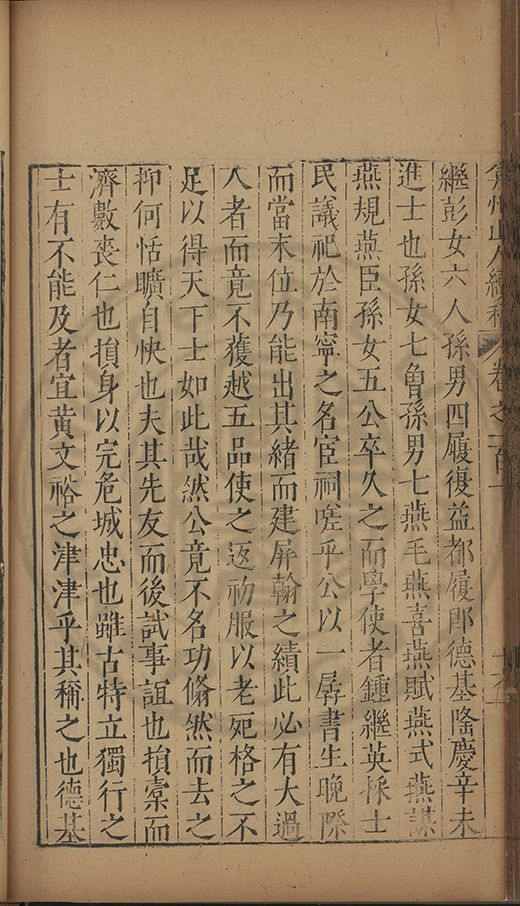 弇州山人續稿 卷之一百一
繼彭女六人孫男四履復益都履郎德基隆慶辛未
進士也孫女七曾孫男七燕毛燕喜燕賦燕式燕謀
燕規燕臣孫女五公卒久之而學使者鍾繼英採士
民議祀於南寧之名宦祠嗟乎公以一孱書生晚際
而當末位乃能出其緒而建屏翰之績此必有大過
人者而竟不獲越五品使之返初服以老死格之不
足以得天下士如此哉然公竟不名功翛然而去之
抑何恬曠自快也夫其先友而後試事誼也損橐而
濟數喪仁也損身以完危城忠也雖古特立獨行之
士有不能及者宜黃文裕之津津乎其稱之也德基